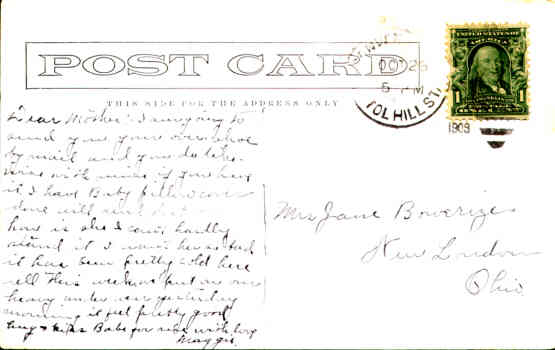 POST CARD
THIS SIDE FOR THE ADDRESS ONLY
DENVER
OCT 26
5 PM
TOL HILL ST.
1909
UNITED STATES OF AMERICA
1 1
ONE CENT
Dear Mother: I am going to
send you your
by mail and you do
with mine if you have
it I have Baby pillow cover
done will send
how is she I can hardly
stand it I want her so bad
it has been pretty cold here
all this week put on our
heavy under wear yesterday
morning it feel pretty good
hug & kiss Babe for me with love
Maggie
Mrs Jane Bowerize
New London
Ohio